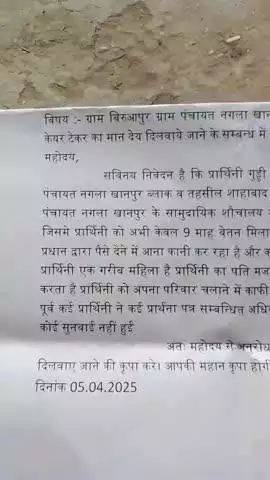 विषय :- ग्राम बिरुआपुर ग्राम पंचायत नगला खान
केयर टेकर का मान देय दिलवाये जाने के सम्बन्ध में
महोदय,
सविनय निवेदन है कि प्रार्थिनी गुड्डी
पंचायत नगला खानपुर ब्लाक व तहसील शाहाबाद
पंचायत नगला खानपुर के सामुदायिक शौचालय
जिसमे प्रार्थिनी को अभी केवल 9 माह वेतन मिला
प्रधान द्वारा पैसे देने में आना कानी कर रहा है और
प्रार्थिनी एक गरीब महिला है प्रार्थिनी का पति मज
करता है प्रार्थिनी को अपना परिवार चलाने में काफी
पूर्व कई प्रार्थिनी ने कई प्रार्थना पत्र सम्बन्धित अधि
कोई सुनवाई नहीं हुई
अतः महोदय से अनुरोध
दिलवाए जाने की कृपा करे। आपकी महान कृपा होगी
दिनांक 05.04.2025